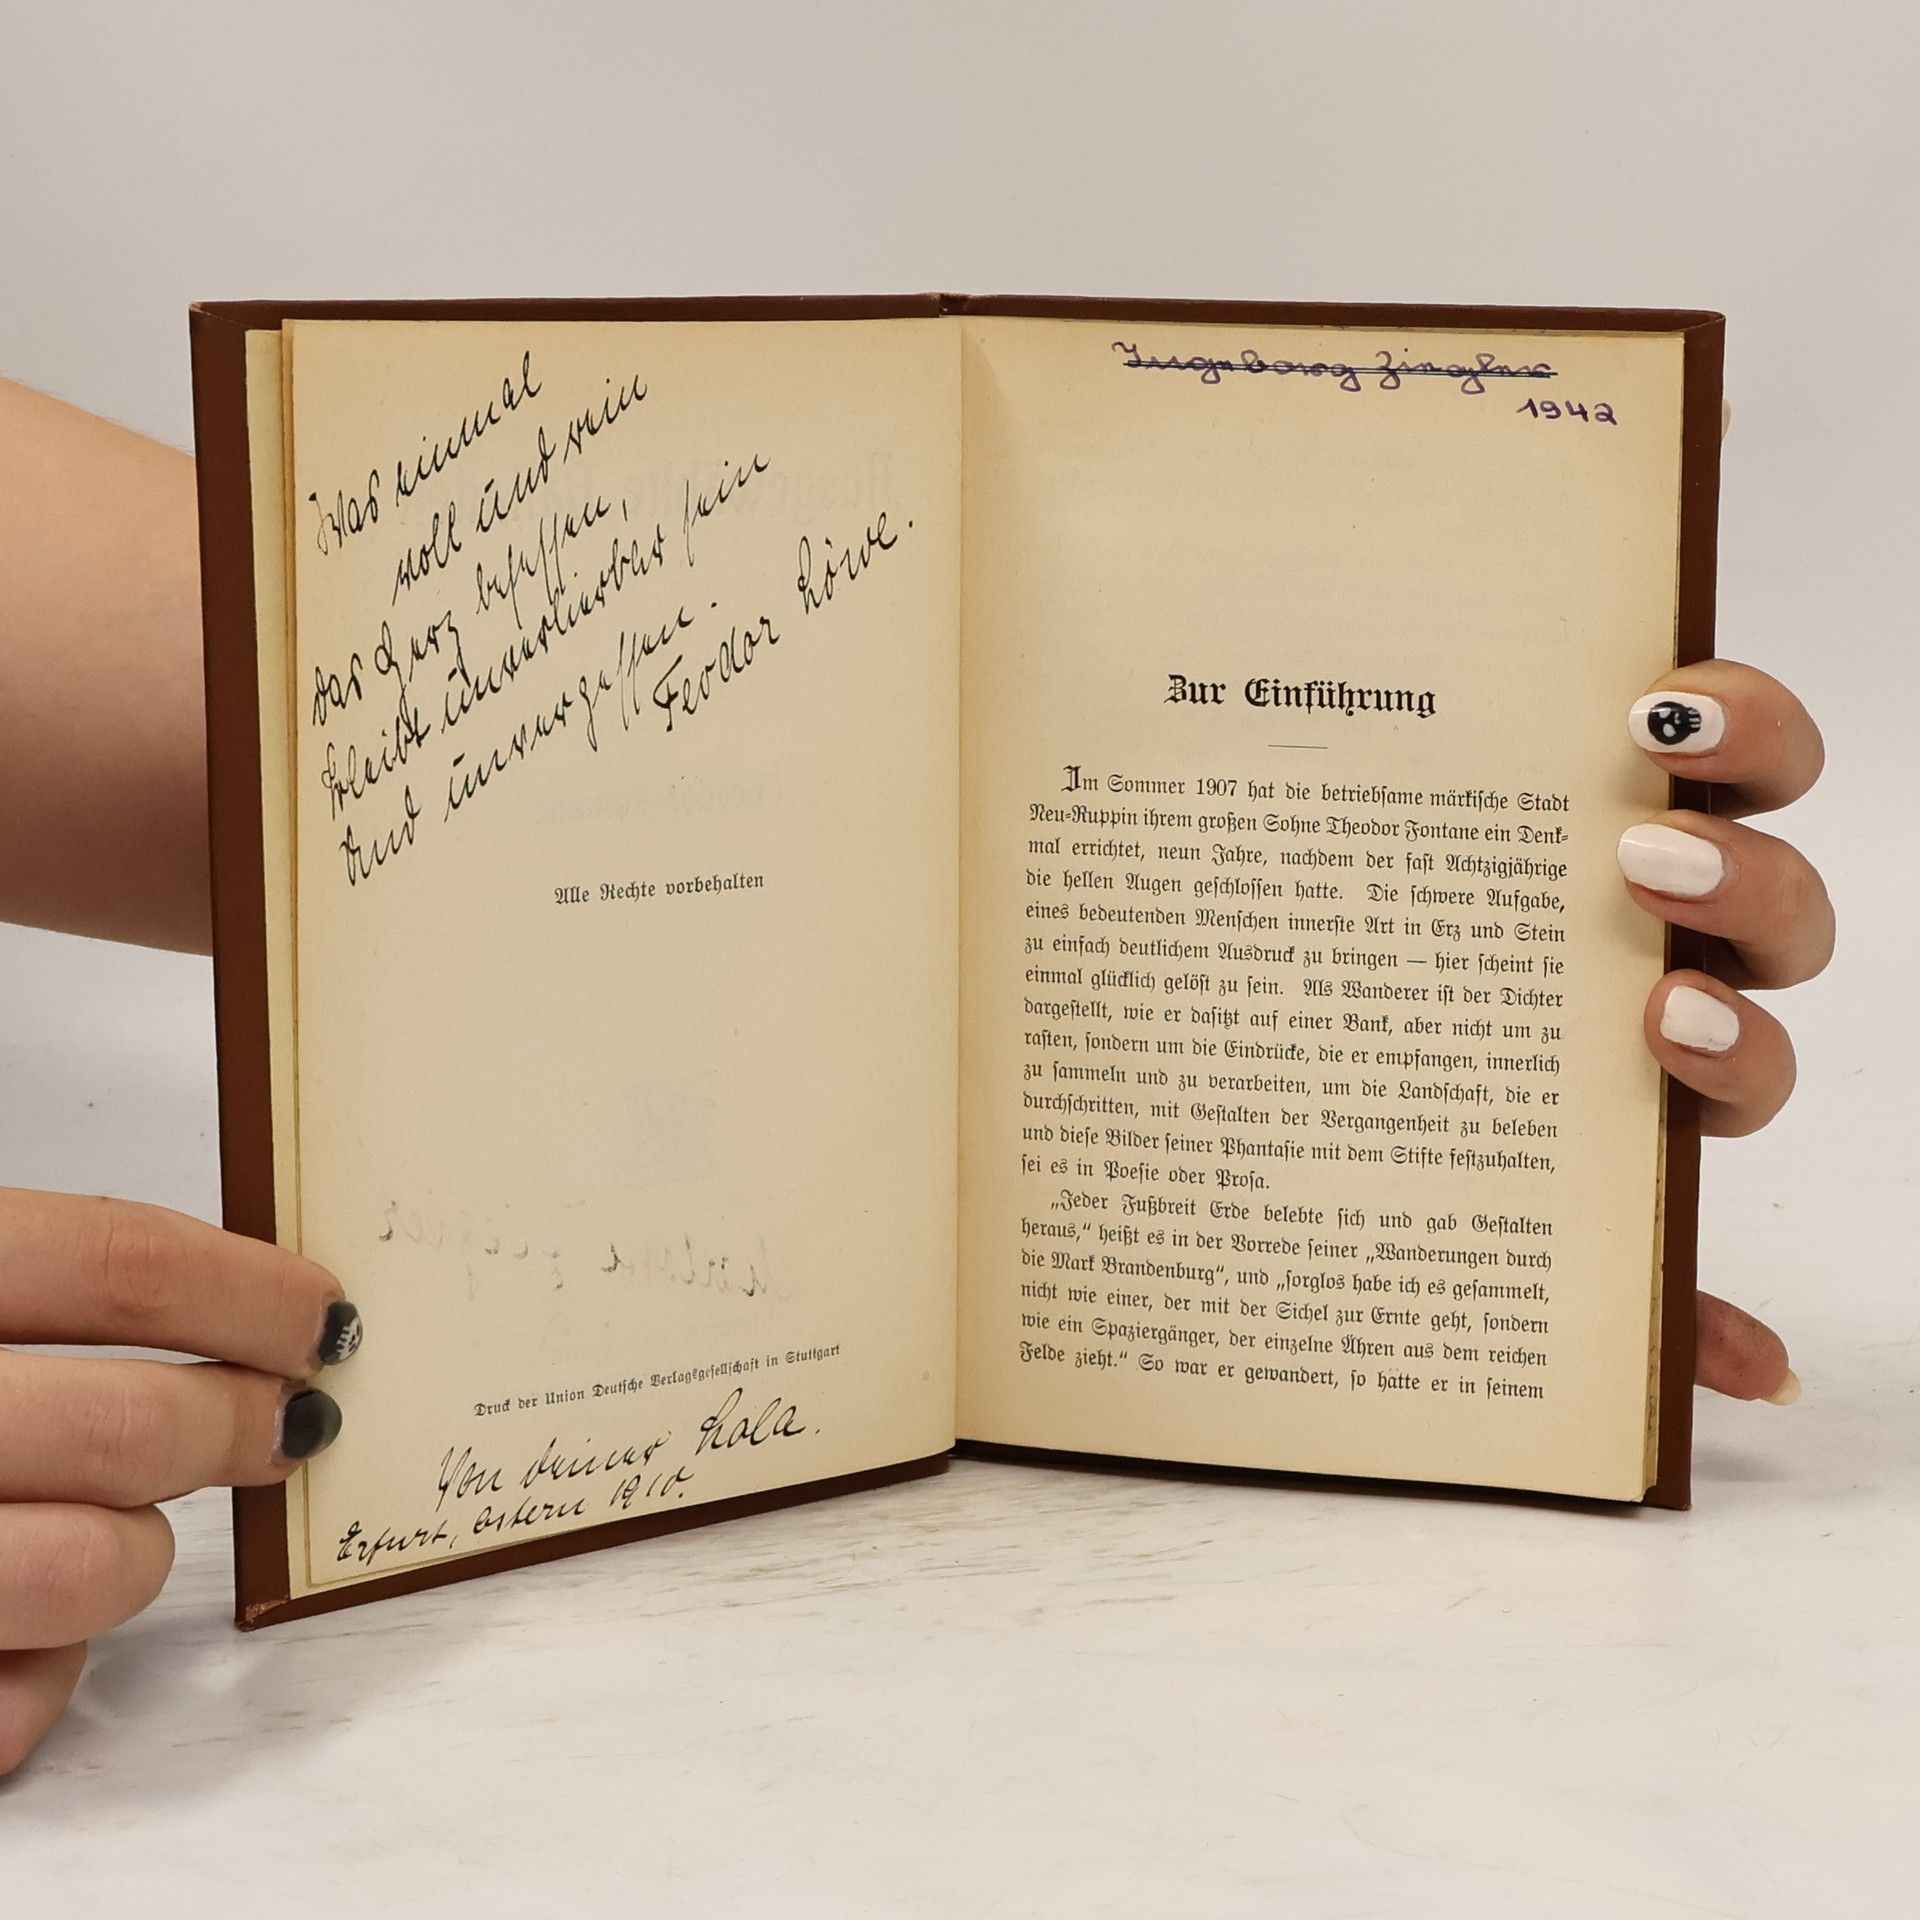 Was einmal
voll und rein
das Herz besessen,
bleibt unverlierbar sein
Und unvergessen.
Feodor Löwe.
Alle Rechte vorbehalten
Druck der Union Deutsche Verlagsgesellschaft in Stuttgart
Von deiner Lola.
Erfurt, Ostern 1910.
Ingeborg Ziegler
1942
Zur Einführung
Im Sommer 1907 hat die betriebsame märkische Stadt
Neu-Ruppin ihrem großen Sohne Theodor Fontane ein Denk-
mal errichtet, neun Jahre, nachdem der fast Achtzigjährige
die hellen Augen geschlossen hatte. Die schwere Aufgabe,
eines bedeutenden Menschen innerste Art in Erz und Stein
zu einfach deutlichem Ausdruck zu bringen — hier scheint sie
einmal glücklich gelöst zu sein. Als Wanderer ist der Dichter
dargestellt, wie er dasitzt auf einer Bank, aber nicht um zu
rasten, sondern um die Eindrücke, die er empfangen, innerlich
zu sammeln und zu verarbeiten, um die Landschaft, die er
durchschritten, mit Gestalten der Vergangenheit zu beleben
und diese Bilder seiner Phantasie mit dem Stifte festzuhalten,
sei es in Poesie oder Prosa.
„Jeder Fußbreit Erde belebte sich und gab Gestalten
heraus,“ heißt es in der Vorrede seiner „Wanderungen durch
die Mark Brandenburg“, und „sorglos habe ich es gesammelt,
nicht wie einer, der mit der Sichel zur Ernte geht, sondern
wie ein Spaziergänger, der einzelne Ähren aus dem reichen
Felde zieht.“ So war er gewandert, so hätte er in seinem